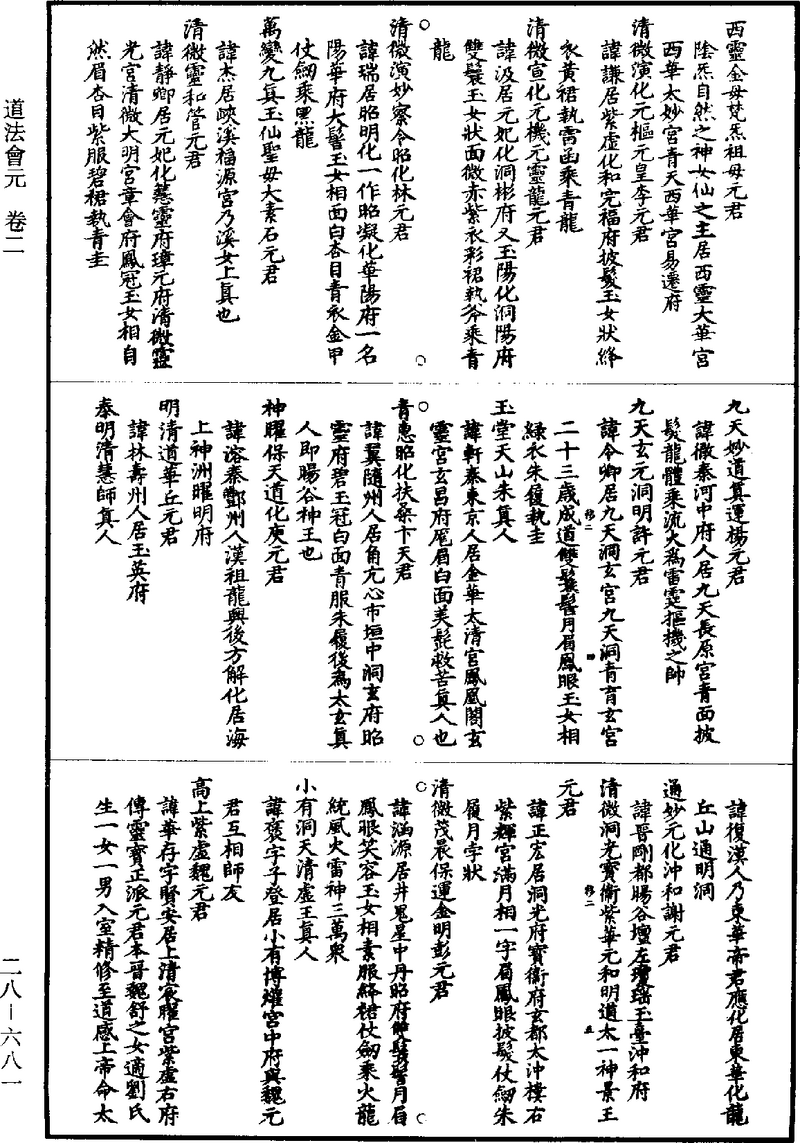 道法會元　卷二
西靈金母梵炁祖母元君
陰炁自然之神女仙之主居西靈大華宮
西華太妙宮青天西華宮易遷府
清微演化元樞元皇李元君
諱謙居紫虛化和完福府披髮玉女狀絳
衣黃裙執雷函乘青龍
清微宣化元機元靈龍元君
諱汲居元妃化洞彬府又玉陽化洞陽府
雙鬟玉女狀面微赤紫衣彩裙執斧乘青
龍
清微演妙察令昭化林元君
諱瑞居昭明化一作昭凝化華陽府一名
陽華府大髻玉女相面白杏目青衣金甲
仗劒乘黑龍
萬變九真玉仙聖母大素石元君
諱杰居峽溪福源宮乃溪女上真也
清微靈和管元君
諱靜卿居元妃化慧靈府瑋元府清微靈
光宮清微大明宮章會府鳳冠玉女相自
然眉杏目紫服碧裙執青圭
九天妙道真運楊元君
諱微秦河中府人居九天長原宮青面披
髮龍體乘流火為雷霆摳機之帥
九天玄元洞明許元君
諱令卿居九天洞玄宮九天洞青育玄宮
二十三歲成道雙鬟髻月眉鳳眼玉女相
綠衣朱履執圭
玉堂天山朱真人
諱軒秦東京人居金華太清宮鳳凰閣玄
靈宮玄昌府厖眉白面美髭救苦真人也
青惠昭化扶桑卞天君
諱翼隨州人居角亢心市垣中洞玄府昭
靈府碧玉冠白面青服朱履後為太玄真
人即暘谷神王也
神曜保天道化庚元君
諱溶秦鄷州人漢祖龍興後方解化居海
上神洲曜明府
明清道華丘元君
諱林壽州人居玉英府
泰明清慧師真人
諱復漢人乃東華帝君應化居東華化龍
丘山通明洞
通妙元化沖和謝元君
諱晉剛都暘谷壇左瓊瑶玉臺沖和府
清微洞光寶衛紫華元和明道太一神景王
元君
諱正宏居洞光府寶衛府玄都太沖樓右
紫輝宮滿月相一字眉鳳眼披髮仗劒朱
履月孛狀
清微茂晨保運金明彭元君
諱涵源居井鬼星中丹昭府雙鬟髻月眉
鳳眼笑容玉女相素服絳裙仗劒乘火龍
統風火雷神三萬眾
小有洞天清虛王真人
諱褒字子登居小有博㸌宮中府與魏元
君互相師友
高上紫虛魏元君
諱華存字賢安居上清宸曜宮紫虛右府
傳靈寶正派元君本晉魏舒之女適劉氏
生一女一男入室精修至道感上帝命太
二八—六八一